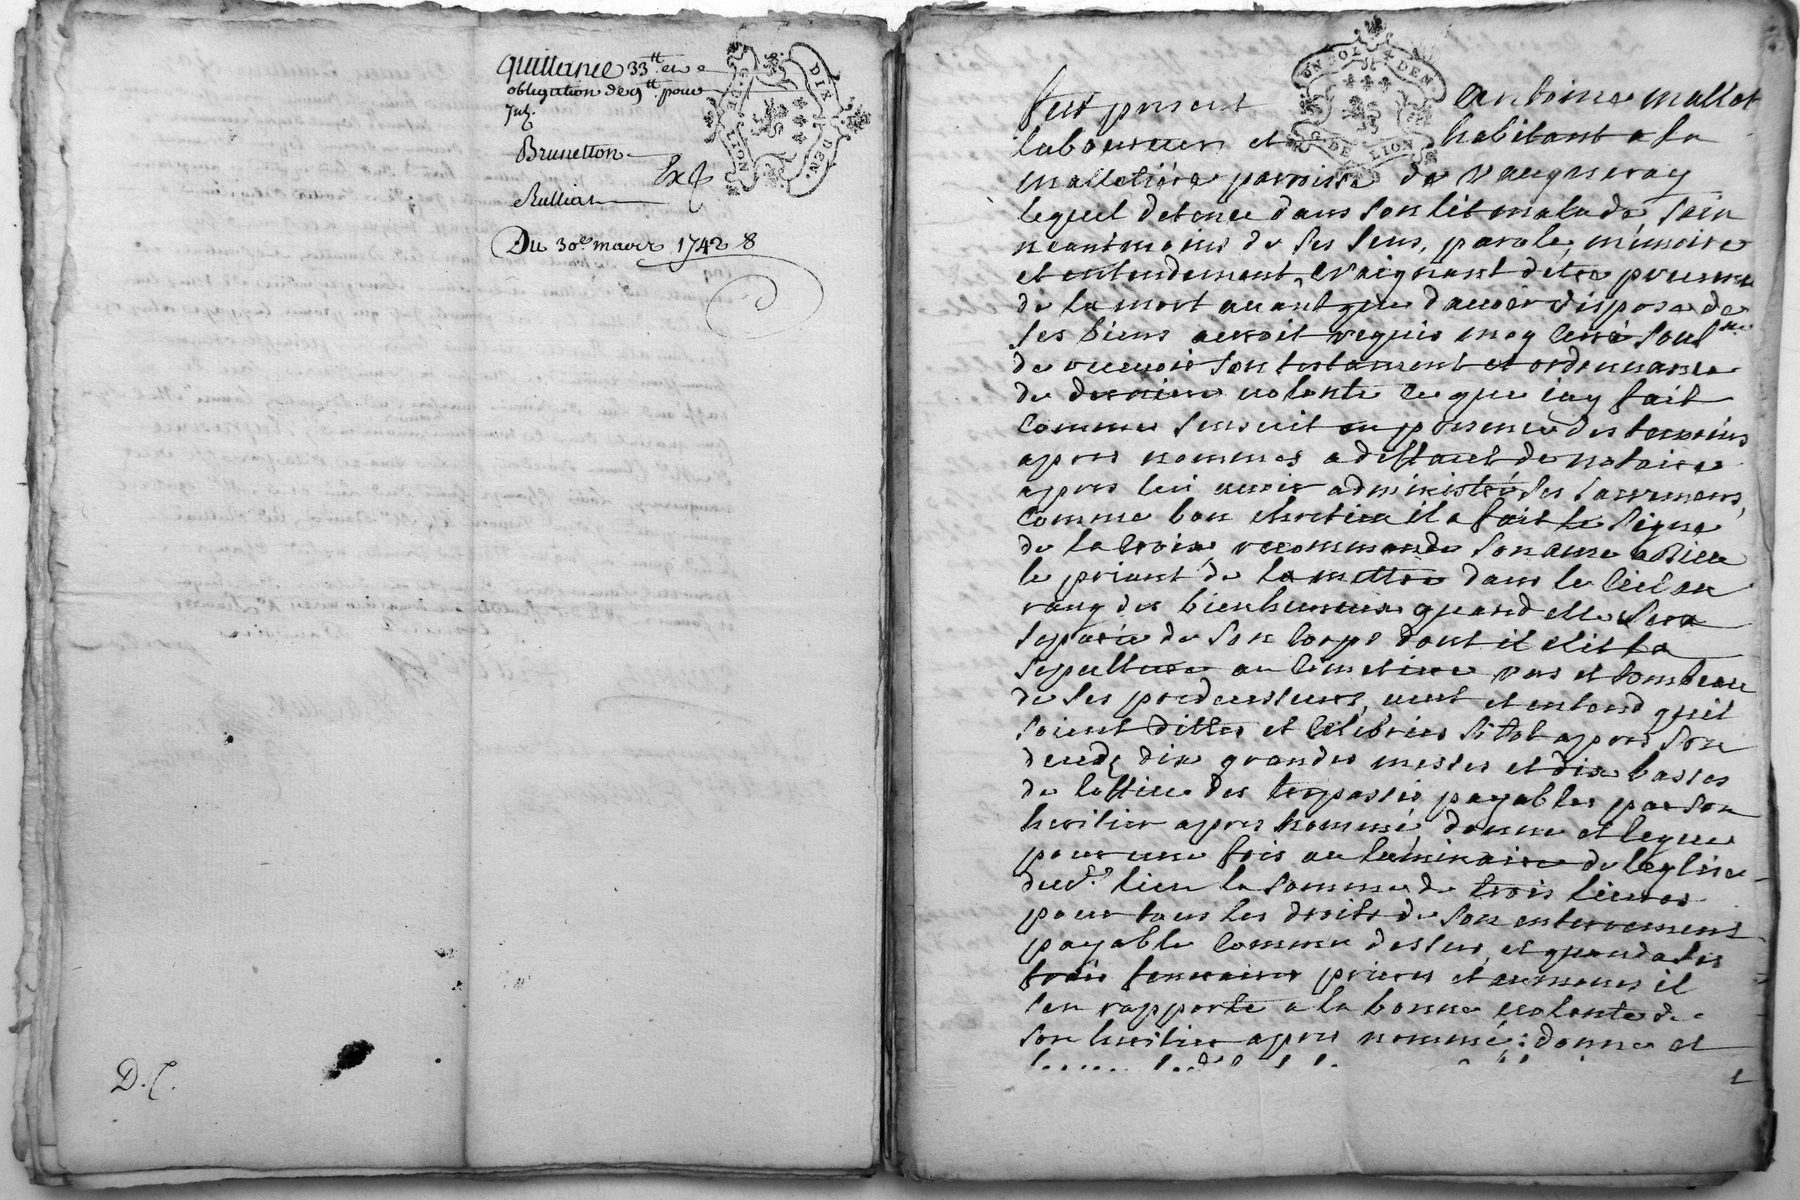 quittance 33tt et
obligation de 9tt pour
Jul.
Brunetton
Exp
Rulliat
Du 30e mars 1742
G. DE LION
DIX DEN.
D. C.
UN SOL 4 DEN.
G. DE LION
fut present Antoine mallot
laboureur et habitant a la
mallotiere parroisse de Vaugneray
lequel detenu dans son lit malade sain
neantmoins de ses sens, parole, mémoire
et entendement craignant detre prevenu
de la mort avant que davoir dispose de
ses biens auroit requis moy curé sousné
de recevoir son testament et ordonnance
de derniere volonte ce que iay fait
comme sensuit en presence des temoins
apres nommes a deffaut de notaire
apres lui avoir administré les sacremens,
comme bon chretien il a fait le signe
de la croix, recommande son ame a Dieu
le priant de la mettre dans le Ciel au
rang des bienheureux quand elle sera
separée de son corps dont il elit la
sepulture au cimetiere vas et tombeau
de ses predecesseurs, veut et entend quil
soient dittes et celebrées sitot apres son
decedz dix grandes messes et dix basses
de loffice des trepassés payables par son
heritier apres nommé, donne et legue
pour une fois au luminaire de leglise
dud. lieu la somme de trois livres
pour tous les droits de son enterrement
payable comme dessus, et quand a ses
frais funeraires prieres et aumones il
sen rapporte a la bonne volonte de
son heritier apres nommé; donne et